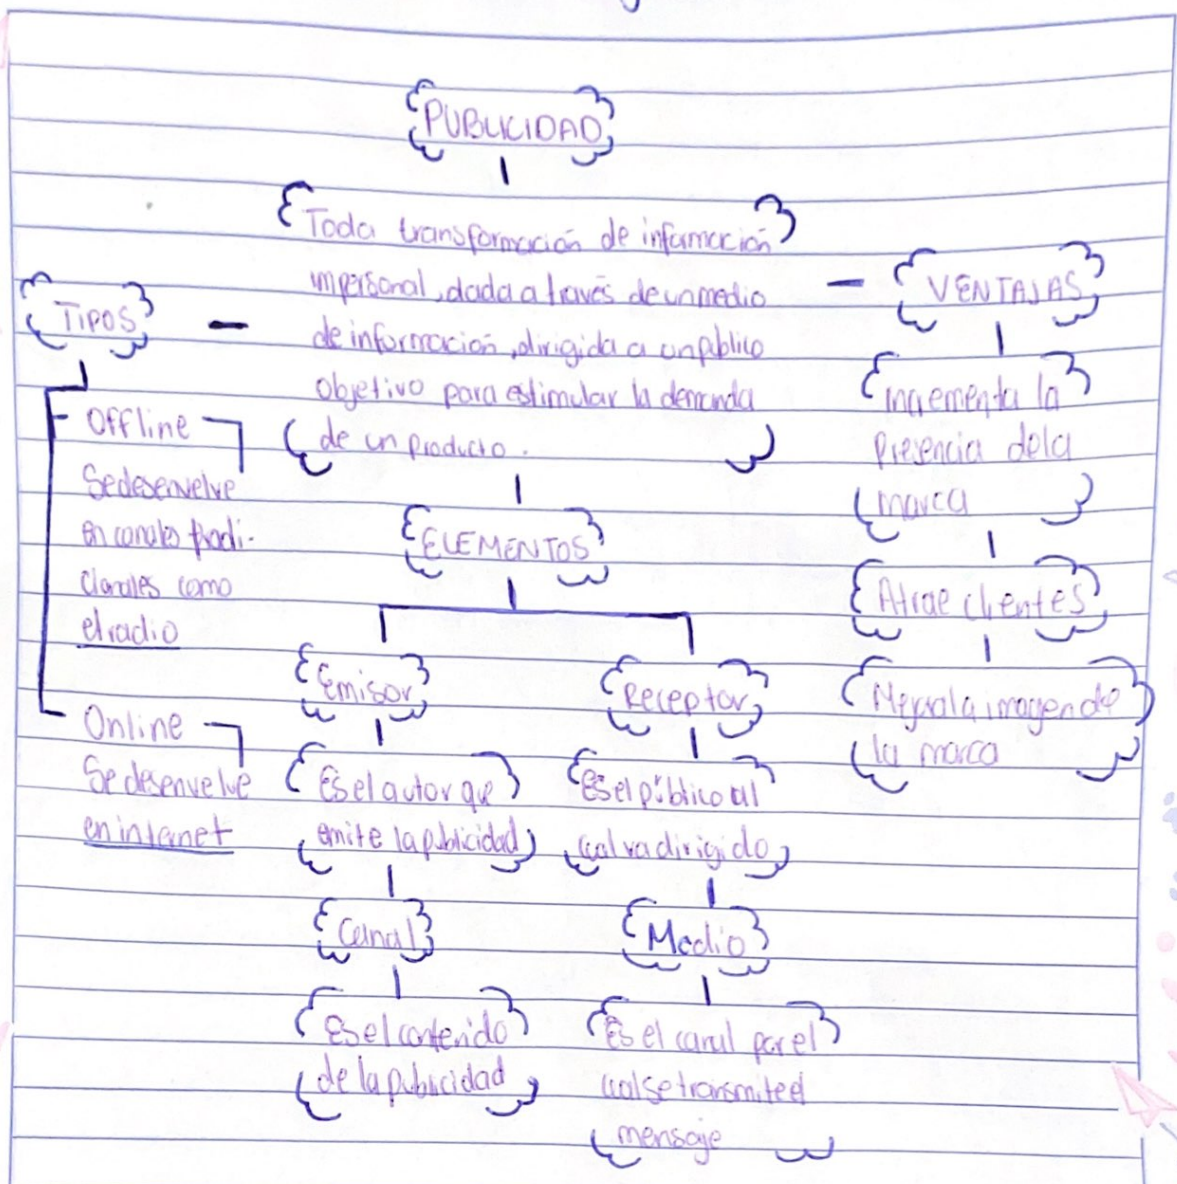 PUBLICIDAD
Toda transformación de información
impersonal, dada a través de un medio
de información, dirigida a un público
objetivo para estimular la demanda
de un producto.
TIPOS
Offline
Se desenvuelve
en canales tradi-
cionales como
el radio
Online
Se desenvuelve
en internet
ELEMENTOS
Emisor
Es el autor que
emite la publicidad
Canal
Es el contenido
de la publicidad
Receptor
Es el público al
cual va dirigido
Medio
Es el canal por el
cual se transmite el
mensaje
VENTAJAS
Incrementa la
Presencia de la
marca
Atrae clientes
Mejora la imagen de
la marca